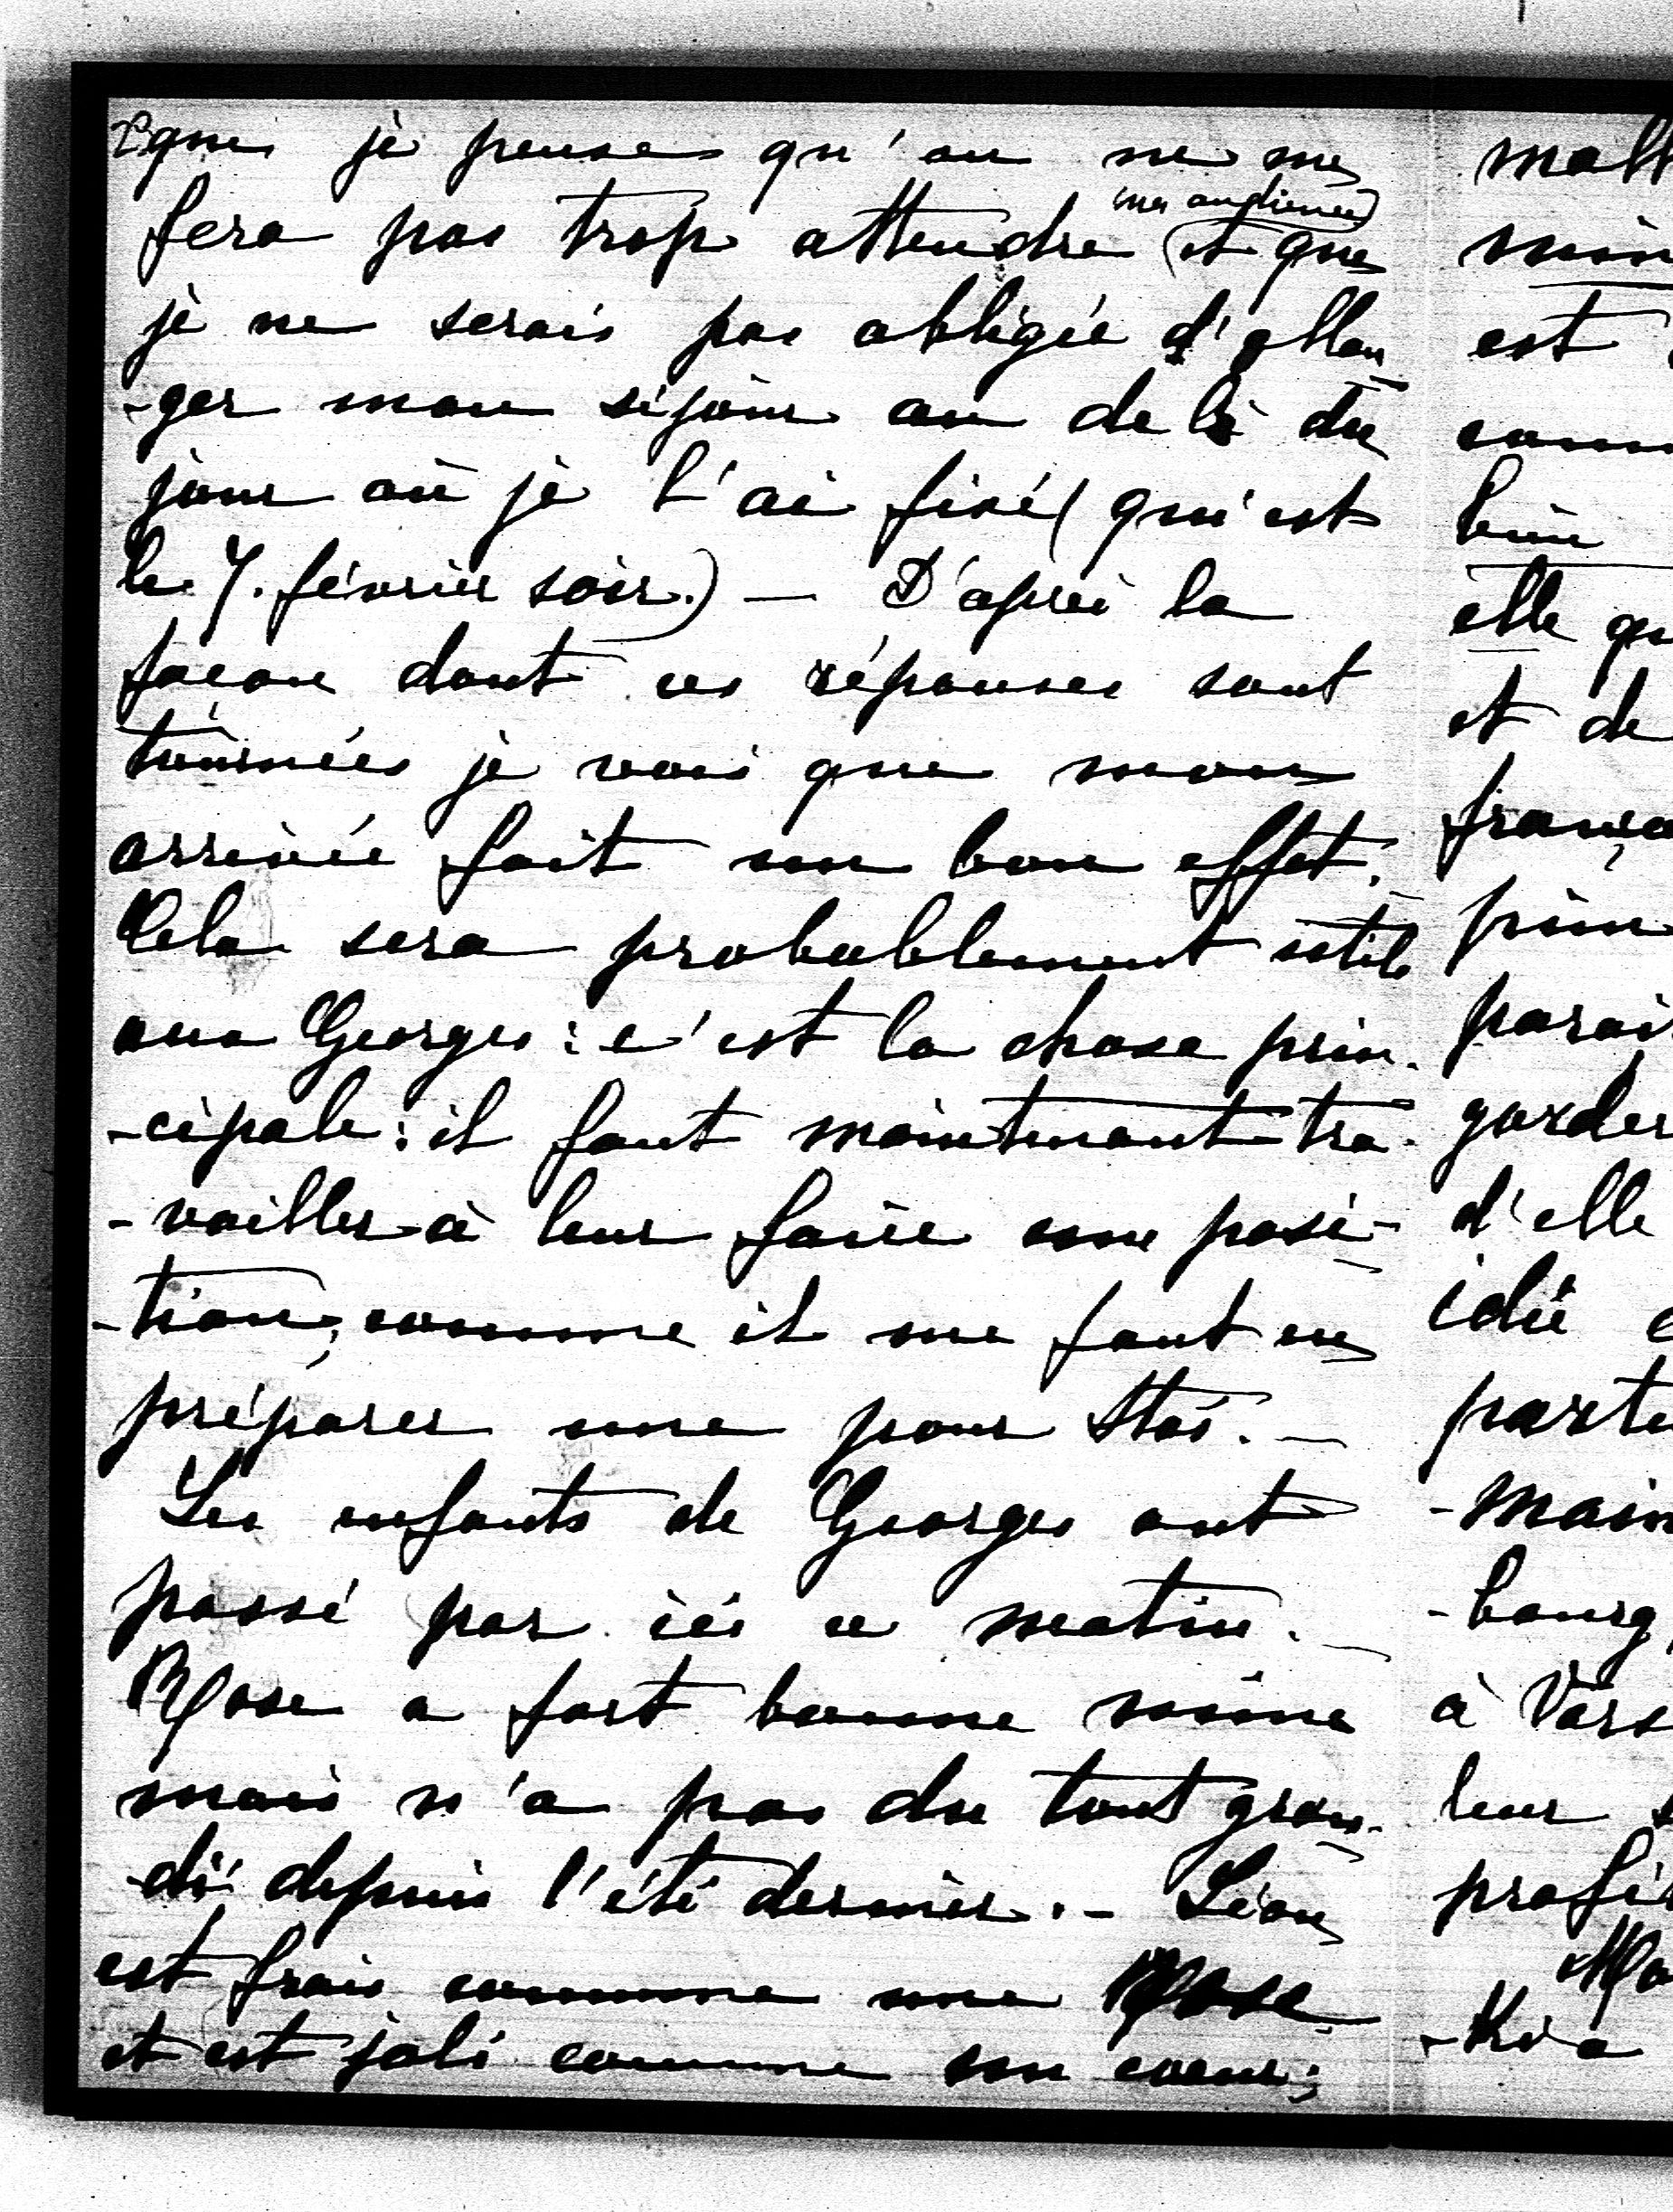 que je pense qu'on ne me
mes audiences
fera pas trop attendre (et que
je ne serais pas obligée d'allon
-ger mon séjour au delà du
jour où je l'ai fixé (qui est
le 7. février soir.) — D'après la
façon dont ces réponses sont
tournées je vois que mon
arrivée fait un bon effet.
Cela sera probablement utile
aux Georges : c'est la chose prin-
-cipale : il faut maintenant tra-
-vailler à leur faire une posi-
-tion, comme il me faut en
préparer une pour Stas. —
Les enfants de Georges ont
passé par ici ce matin. —
Rose a fort bonne mine
mais n'a pas du tout gran-
-di depuis l'été dernier. - Léon
est frais comme une Rose
et est joli comme un coeur ;
est
elle qu
et de
garder
d'elle
idée
-main
-bourg
à Vars
leur